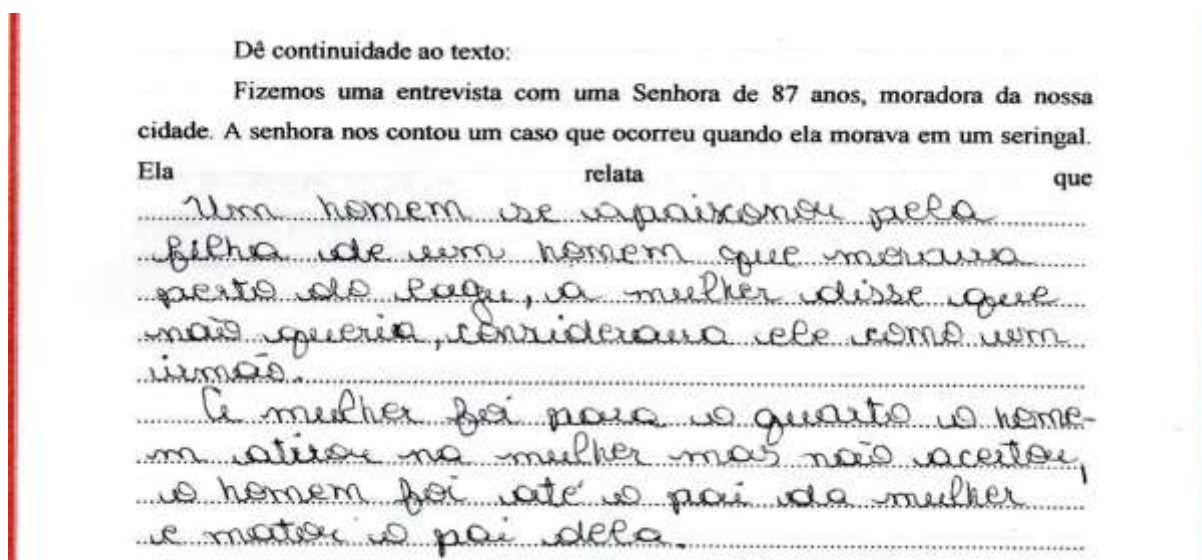 Dê continuidade ao texto:
Fizemos uma entrevista com uma Senhora de 87 anos, moradora da nossa
cidade. A senhora nos contou um caso que ocorreu quando ela morava em um seringal.
Ela relata que
Um homem se apaixonou pela
filha de um homem que morava
perto do lagu, a mulher disse que
não queria, considerava ele como um
irmão.
A mulher foi para o quarto o home-
m atirou na mulher mas não aceitou,
o homem foi até o pai da mulher
e matou o pai dela.